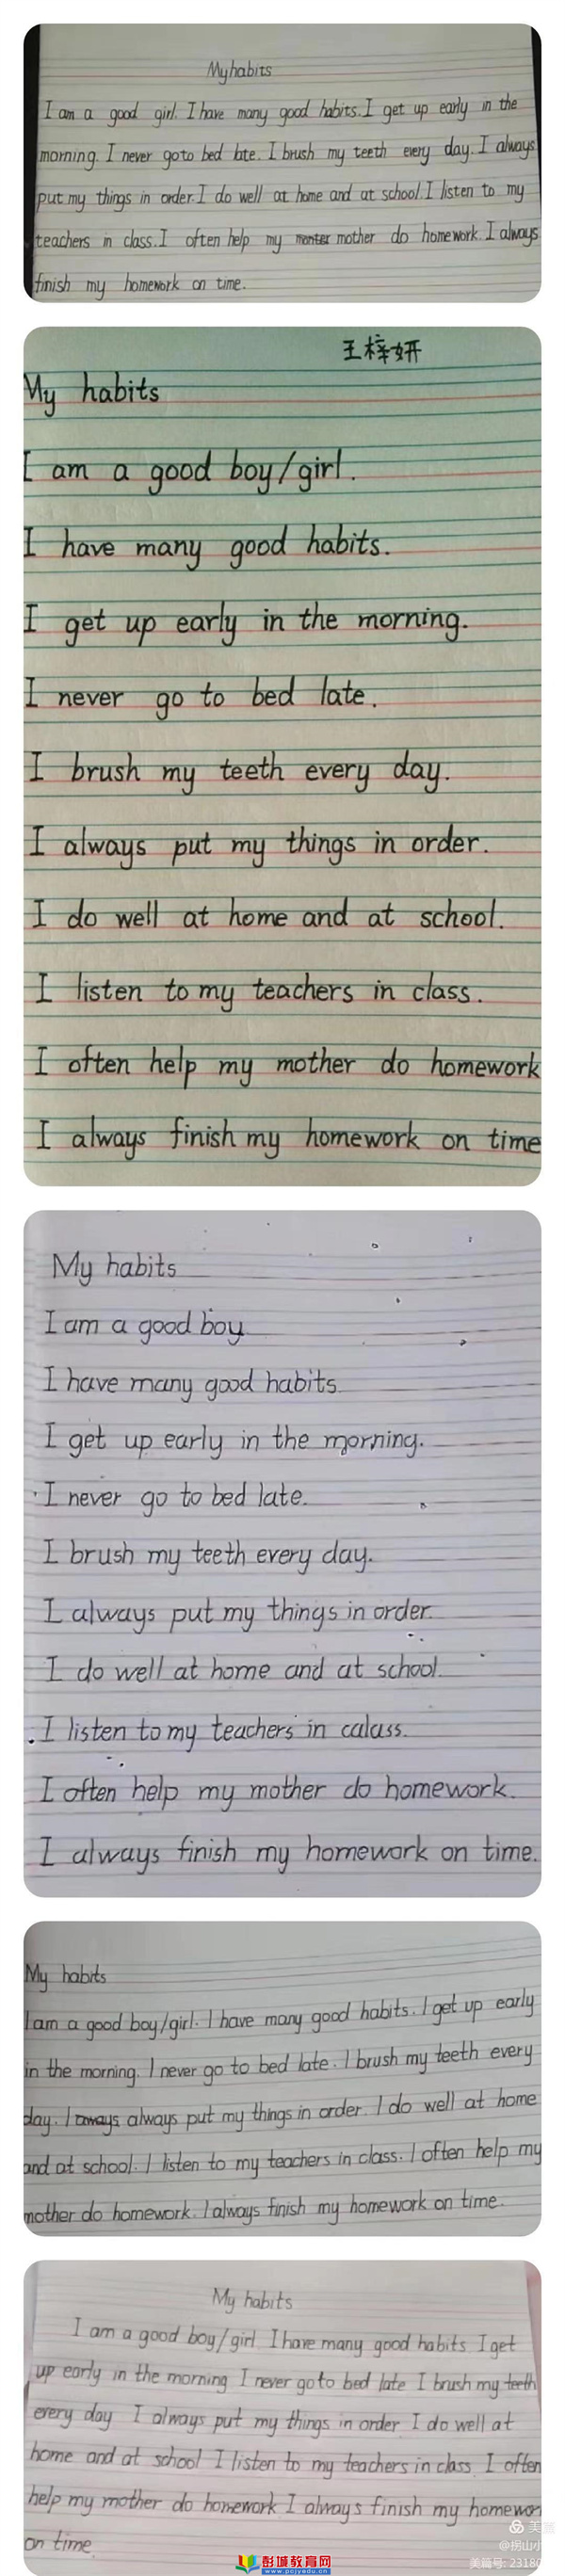 My habits
I am a good girl. I have many good habits. I get up early in the
morning. I never go to bed late. I brush my teeth every day. I always
put my things in order. I do well at home and at school. I listen to my
teachers in class. I often help my mother do homework. I always
finish my homework on time.
王梓妍
My habits
I am a good boy/girl.
I have many good habits.
I get up early in the morning.
I never go to bed late.
I brush my teeth every day.
I always put my things in order.
I do well at home and at school.
I listen to my teachers in class.
I often help my mother do homework
I always finish my homework on time
My habits
I am a good boy
I have many good habits
I get up early in the morning.
I never go to bed late.
I brush my teeth every day.
I always put my things in order.
I do well at home and at school.
I listen to my teachers in calass.
I often help my mother do homework.
I always finish my homework on time.
My habits
I am a good boy/girl. I have many good habits. I get up early
in the morning. I never go to bed late. I brush my teeth every
day. I always put my things in order. I do well at home
and at school. I listen to my teachers in class. I often help my
mother do homework. I always finish my homework on time.
My habits
I am a good boy/girl I have many good habits I get
up early in the morning I never go to bed late I brush my teeth
every day I always put my things in order I do well at
home and at school I listen to my teachers in class I often
help my mother do homework I always finish my homewor
on time
美篇
@拐山小
美篇号: 23180
彭城教育网
www.pcjyedu.cn